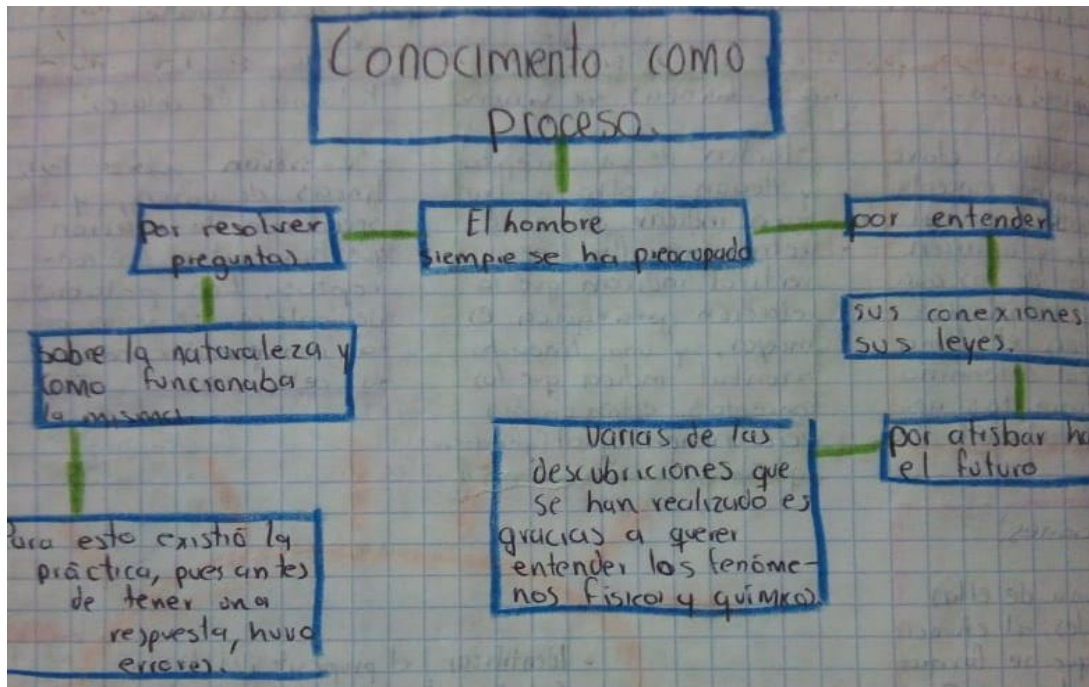 Conocimiento como
proceso.
El hombre
siempre se ha preocupado
por resolver
preguntas
sobre la naturaleza y
como funcionaba
la misma.
Para esto existió la
práctica, pues antes
de tener una
respuesta, huvo
errores.
por entender
sus conexiones
sus leyes.
por atisbar ha
el futuro
Varias de las
descubriciones que
se han realizado es
gracias a querer
entender los fenóme-
nos físicos y químicos